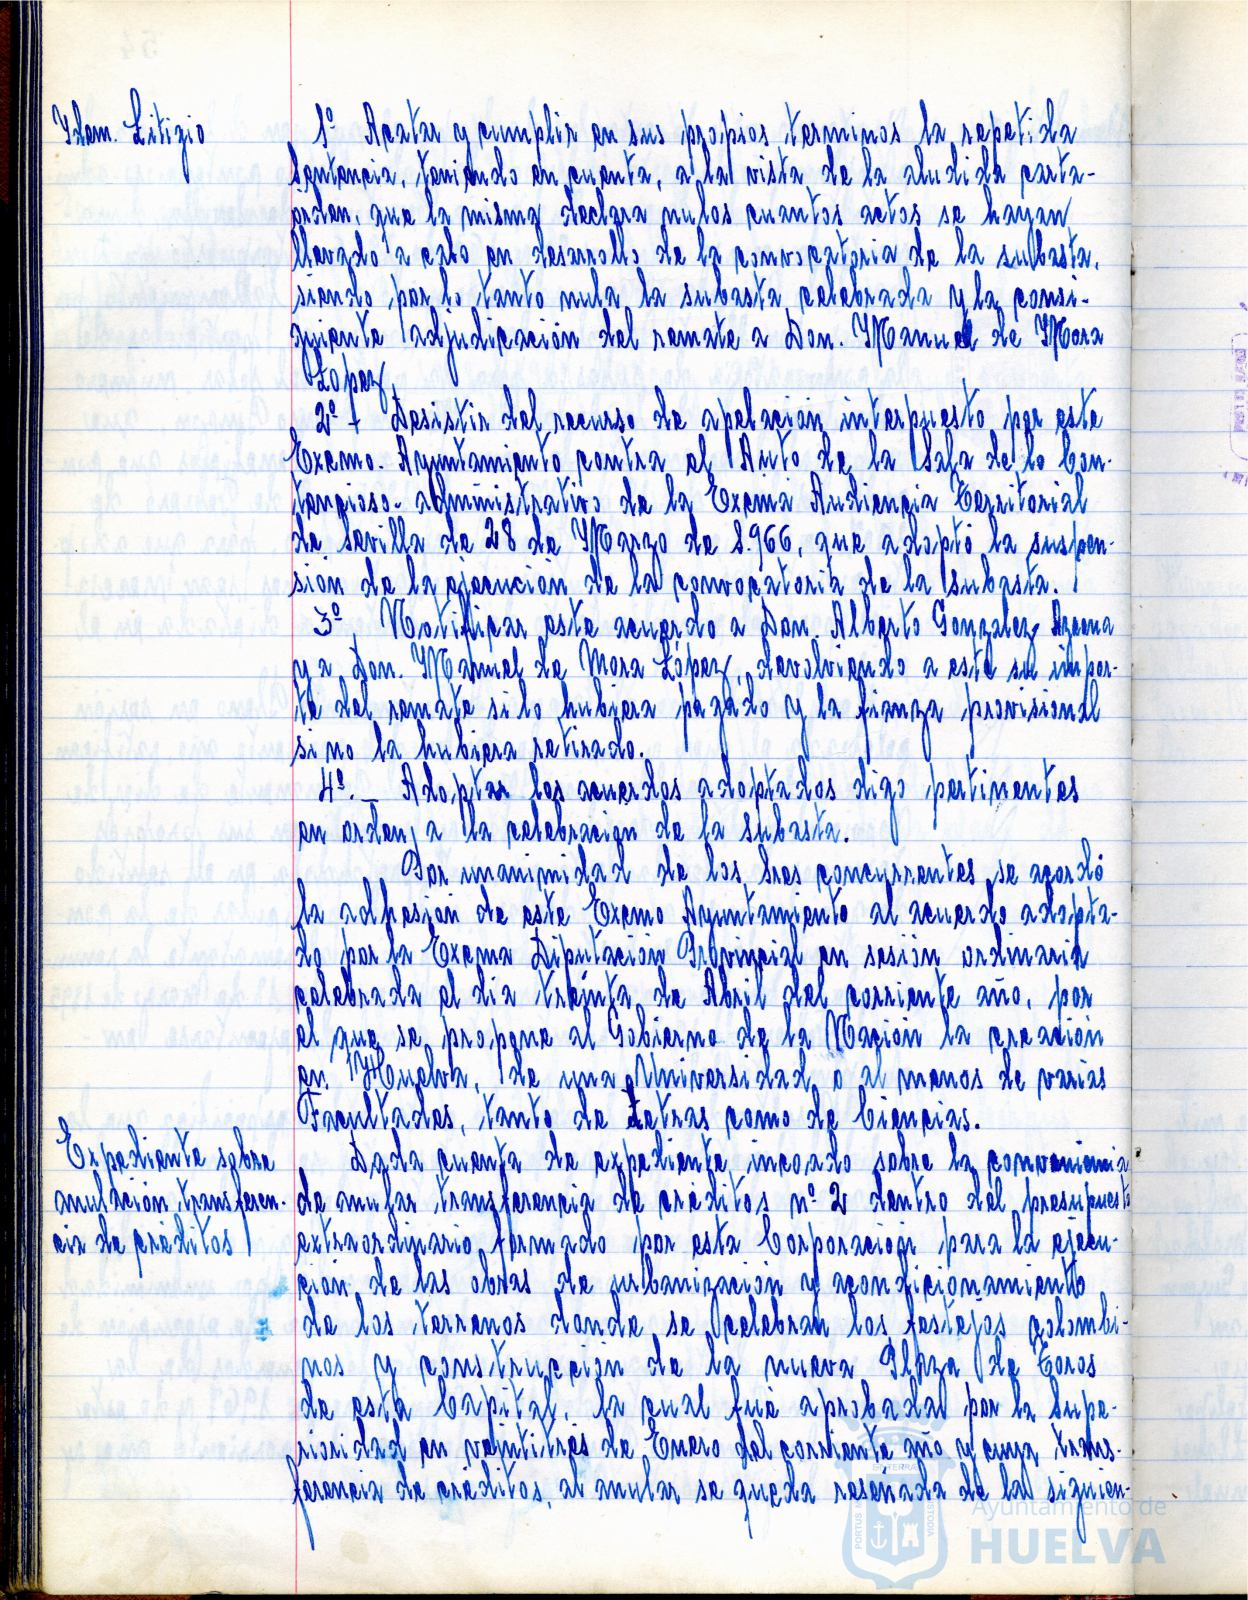 Idem. Litigio
1º Acatar y cumplir en sus propios terminos la repetida
sentencia, teniendo en cuenta, a la vista de la aludida carta-
orden, que la misma declara nulos cuantos actos se hayan
llevado a cabo en desarrollo de la convocatoria de la subasta,
siendo por lo tanto nula la subasta celebrada y la consi-
guiente adjudicación del remate a Don. Manuel de Mora
López
2º Desistir del recurso de apelación interpuesto por este
Excmo. Ayuntamiento contra el Auto de la Sala de lo Con-
tencioso-administrativo de la Excma Audiencia Territorial
de Sevilla de 28 de Marzo de 1.966, que adoptó la suspen-
sión de la ejecución de la convocatoria de la subasta.
3º Notificar este acuerdo a Don. Alberto Gonzalez
y a Don. Manuel de Mora López, devolviendo a este su impor-
te del remate si lo hubiera pagado y la fianza provisional
si no la hubiera retirado.
4º._ Adoptar los acuerdos adoptados digo pertinentes
en orden a la celebración de la subasta.
Por unanimidad de los Sres concurrentes se acordó
la adhesión de este Excmo Ayuntamiento al acuerdo adopta-
do por la Excma Diputación Provincial en sesión ordinaria
celebrada el dia treinta de Abril del corriente año, por
el que se propone al Gobierno de la Nación la creación
en Huelva, de una Universidad o al menos de varias
Facultades, tanto de Letras como de Ciencias.
Expediente sobre
anulación transferen-
cia de créditos
Dada cuenta de expediente incoado sobre la conveniencia
de anular transferencia de créditos nº 2 dentro del presupuesto
extraordinario formado por esta Corporación para la ejecu-
ción de las obras de urbanización y acondicionamiento
de los terrenos donde se celebran los festejos colombi-
nos y construcción de la nueva Plaza de Toros
de esta Capital, la cual fué aprobada por la Supe-
rioridad en veintitres de Enero del corriente año y cuya trans-
ferencia de créditos, al anular se queda reseñada de la siguien-
Ayuntamiento de
HUELVA